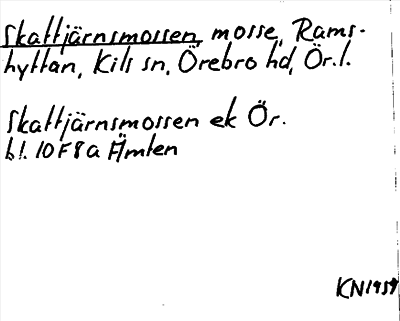 Skattjärnsmossen, mosse, Rams-
hyttan, Kils sn, Örebro hd, Ör.l.
Skattjärnsmossen ek Ör.
bl. 10F8a Ämten
KN1959